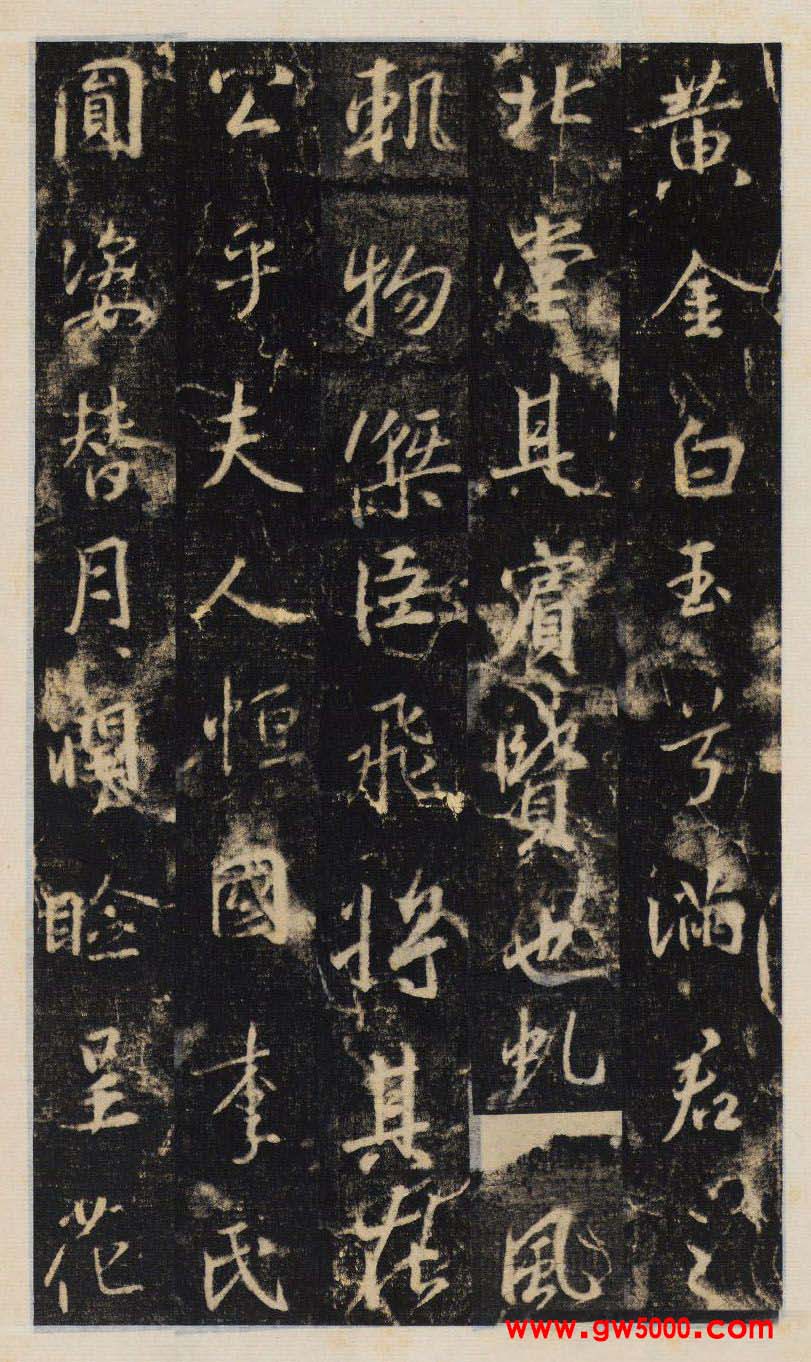 黄金白玉兮滿君之
北堂具賓賢也虬風
軌物傑臣飛將其在
公乎夫人恒國李氏
圓姿替月瞼呈花
www.gw5000.com